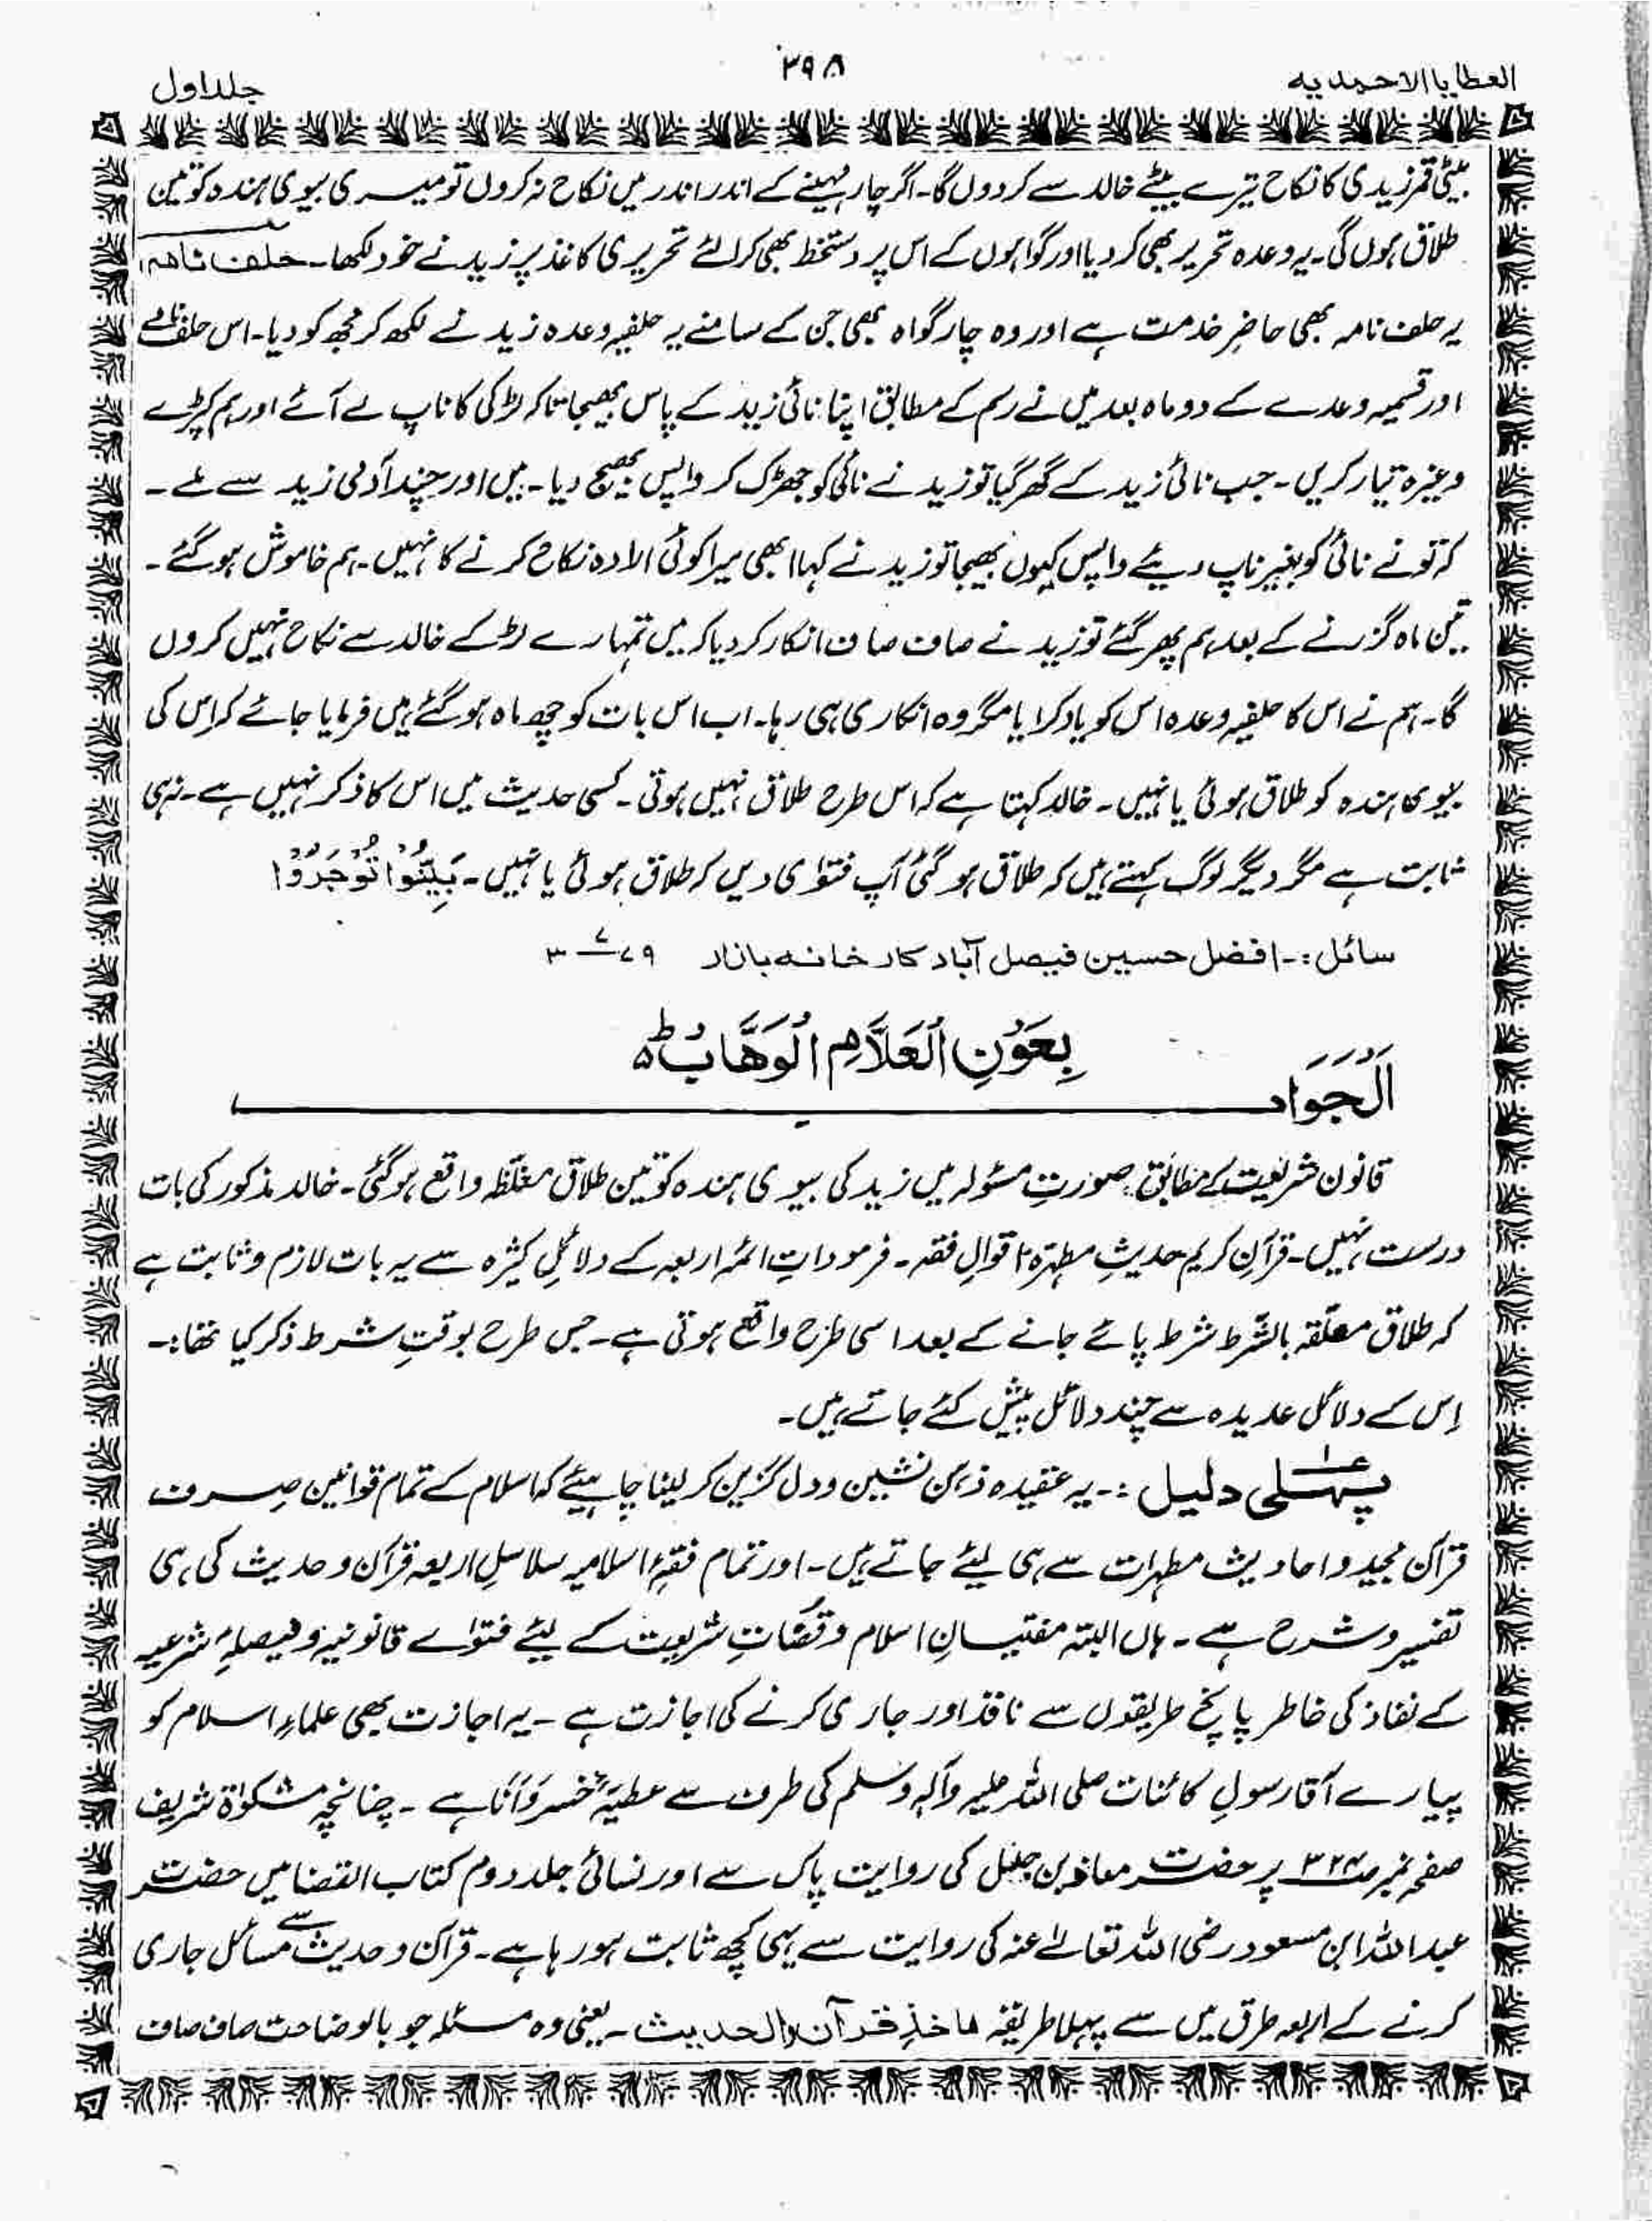 العطایا الاحمدیہ
۳۹۸
جلد اول
بیٹی قمر زیدی کا نکاح تیرے بیٹے خالد سے کر دوں گا۔ اگر چار مہینے کے اندر اندر میں نکاح نہ کروں تو میری بیوی ہندہ کو تین
طلاق ہوں گی۔ یہ وعدہ تحریر بھی کر دیا اور گواہوں کے اس پر دستخط بھی کرائے تحریری کاغذ پر زید نے خود لکھا۔ حلف نامہ،
یہ حلف نامہ بھی حاضرِ خدمت ہے اور وہ چار گواہ بھی جن کے سامنے یہ حلفیہ وعدہ زید نے لکھ کر مجھ کو دیا۔ اس حلف نامے
اور قسمیہ وعدے کے دو ماہ بعد میں نے رسم کے مطابق اپنا نائی زید کے پاس بھیجا تاکہ لڑکی کا ناپ لے آئے اور ہم کپڑے
وغیرہ تیار کریں۔ جب نائی زید کے گھر گیا تو زید نے نائی کو جھڑک کر واپس بھیج دیا۔ میں اور چند آدمی زید سے ملے۔
کہ تو نے نائی کو بغیر ناپ دیئے واپس کیوں بھیجا تو زید نے کہا ابھی میرا کوئی ارادہ نکاح کرنے کا نہیں۔ ہم خاموش ہو گئے۔
تین ماہ گزرنے کے بعد ہم پھر گئے تو زید نے صاف صاف انکار کر دیا کہ میں تمہارے لڑکے خالد سے نکاح نہیں کروں
گا۔ ہم نے اس کا حلفیہ وعدہ اس کو یاد کرایا مگر وہ انکاری ہی رہا۔ اب اس بات کو چھ ماہ ہو گئے ہیں فرمایا جائے کہ اِس کی
بیوی ہندہ کو طلاق ہوئی یا نہیں۔ خالد کہتا ہے کہ اس طرح طلاق نہیں ہوتی۔ کسی حدیث میں اس کا ذکر نہیں ہے۔ نہ ہی
ثابت ہے مگر دیگر لوگ کہتے ہیں کہ طلاق ہو گئی آپ فتوٰی دیں کہ طلاق ہوئی یا نہیں۔ بَیِّنُوْا تُوْجَرُوْا
سائل:۔ افضل حسین فیصل آباد کارخانہ بازار ۷۹-۷-۳
بِعَوْنِ الْعَلَّامِ الْوَهَّابُ ؕ
اَلْجَوَابـــــــ
قانون شریعت کے مطابق صورتِ مسئولہ میں زید کی بیوی ہندہ کو تین طلاق مغلّظہ واقع ہو گئی۔ خالد مذکور کی بات
درست نہیں۔ قرآنِ کریم حدیثِ مطہرہ، اقوالِ فقہ۔ فرموداتِ ائمہ اربعہ کے دلائلِ کثیرہ سے یہ بات لازم و ثابت ہے
کہ طلاق معلّقہ بالشّرط شرط پائے جانے کے بعد اسی طرح واقع ہوتی ہے۔ جس طرح بوقتِ شرط ذکر کیا تھا:۔
اِس کے دلائل عدیدہ سے چند دلائل پیش کئے جاتے ہیں۔
پہلی دلیل ۱:۔ یہ عقیدہ ذہن نشین و دل گزین کر لینا چاہیئے کہ اسلام کے تمام قوانین صرف
قرآن مجید و احادیث مطہرات سے ہی لیئے جاتے ہیں۔ اور تمام فقہِ اسلامیہ سلاسلِ اربعہ قرآن و حدیث کی ہی
تفسیر و شرح ہے۔ ہاں البتہ مفتیانِ اسلام و قضّاتِ شریعت کے لیئے فتوٰے قانونیہ و فیصلۂِ شرعیہ
کے نفاذ کی خاطر پانچ طریقوں سے نافذ اور جاری کرنے کی اجازت ہے۔ یہ اجازت بھی علماءِ اسلام کو
پیارے آقا رسولِ کائنات صلی اللہ علیہ وآلہ وسلم کی طرف سے عطیّۂ خسروانا ہے۔ چنانچہ مشکوٰۃ شریف
صفحہ نمبر ص۳۲۴ پر حضرت معاذ بن جبل کی روایت پاک سے اور نسائی جلد دوم کتاب القضا میں حضرت
عبد اللہ ابن مسعود رضی اللہ تعالےٰ عنہ کی روایت سے یہی کچھ ثابت ہو رہا ہے۔ قرآن و حدیث سے مسائل جاری
کرنے کے اربعہ طرق میں سے پہلا طریقہ ماخذِ قرآن والحدیث۔ یعنی وہ مسئلہ جو بالوضاحت صاف صاف